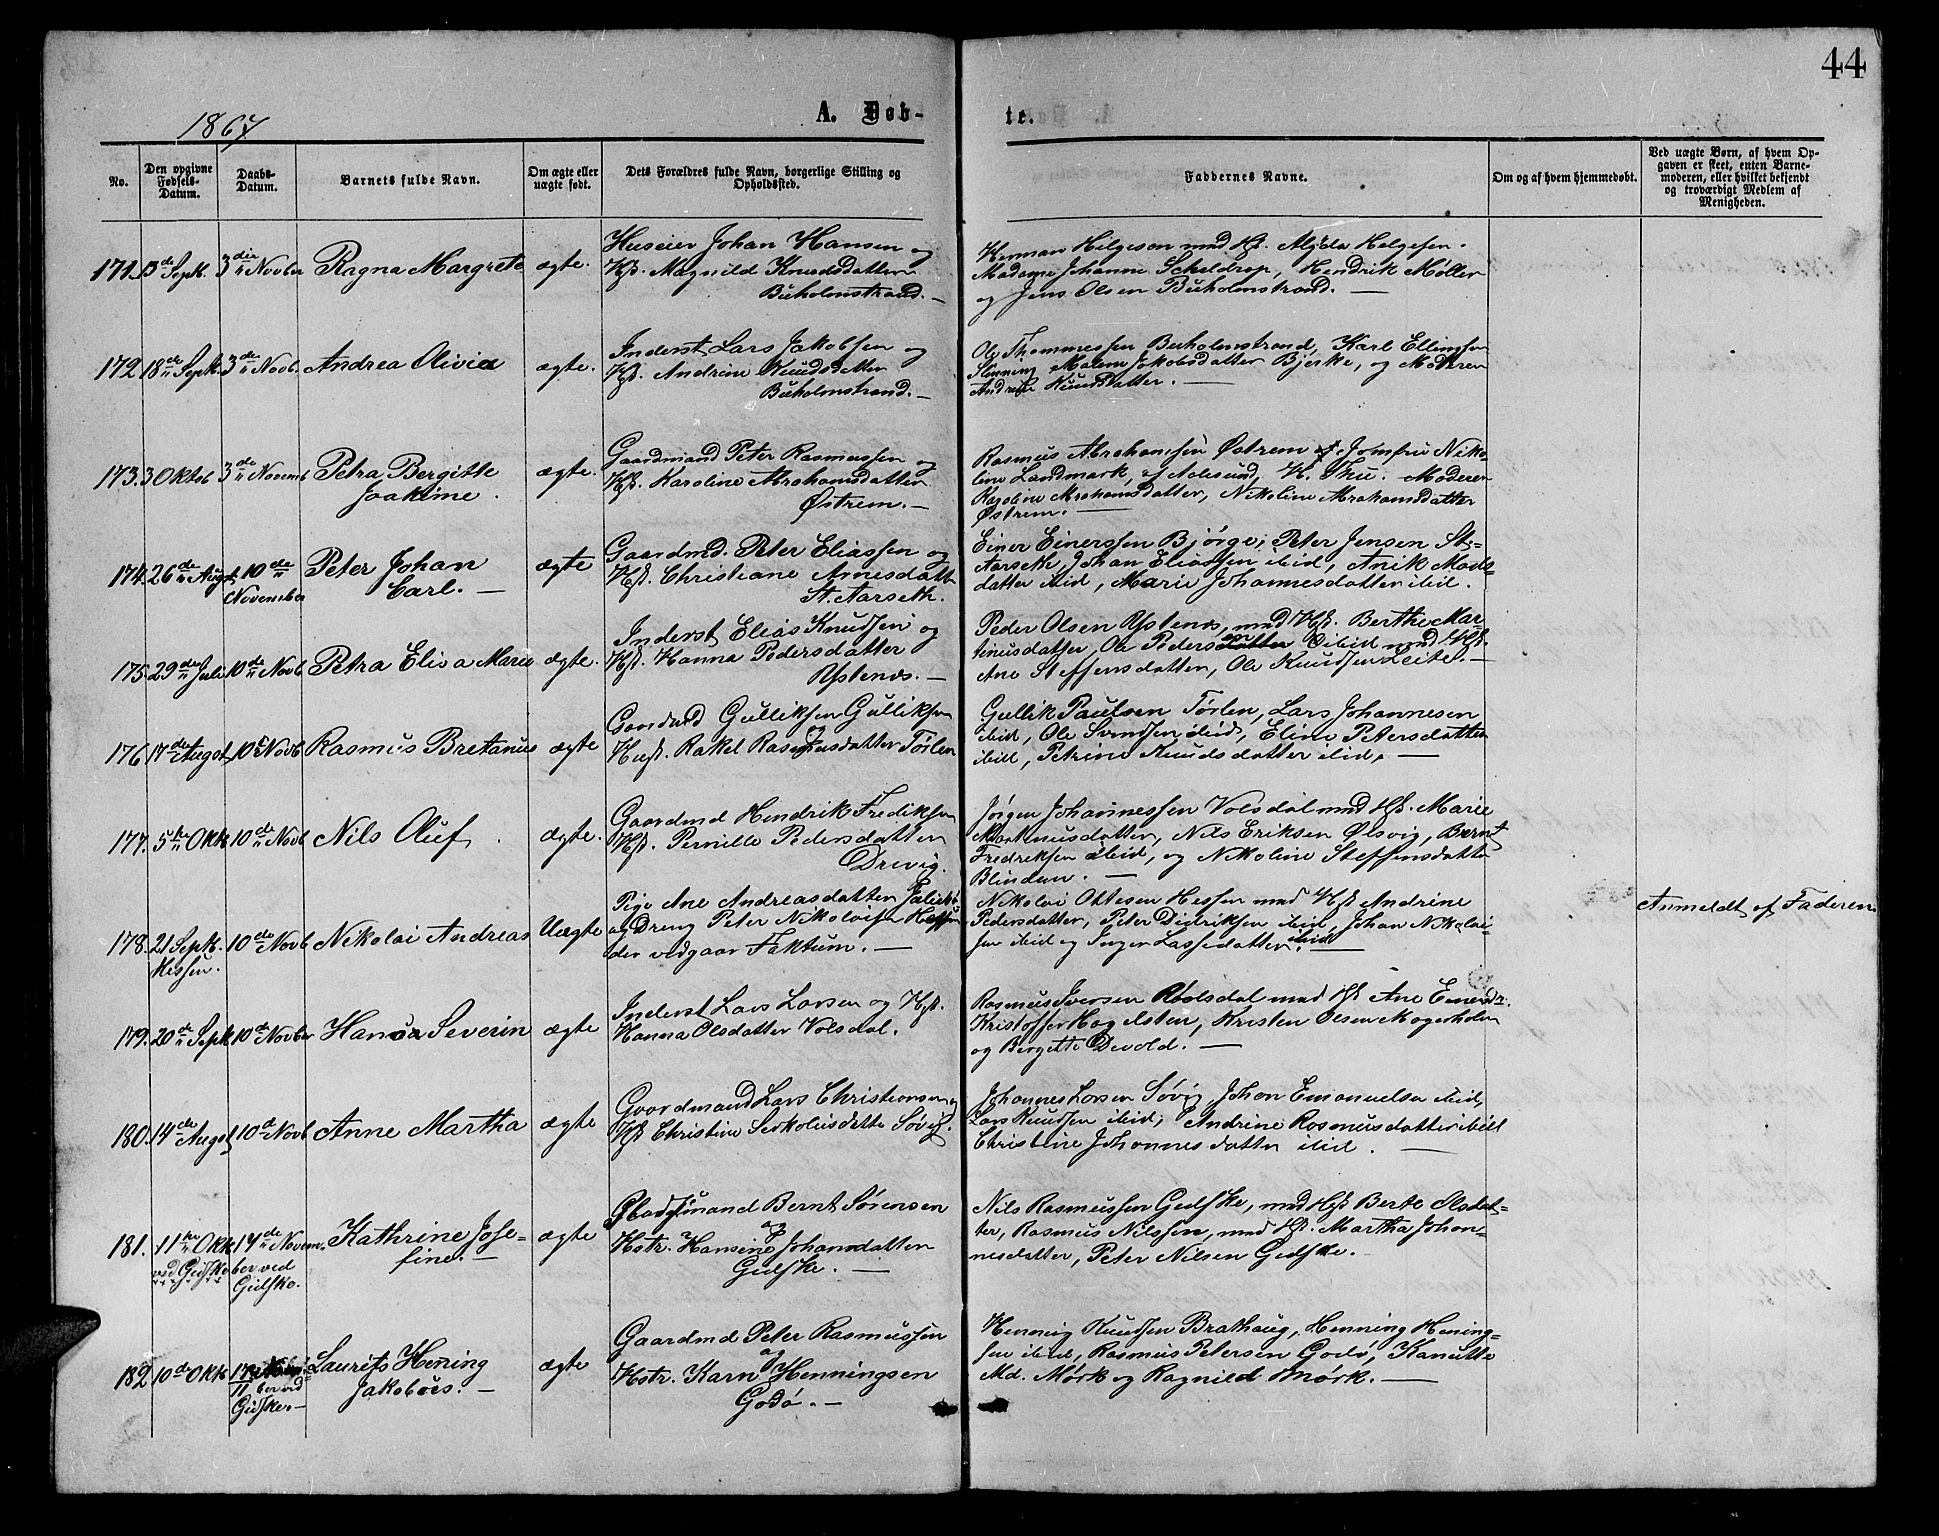 44
1867
A. Døb-
te.
No.
Den opgivne Fødsels-Datum.
Daabs-Datum.
Barnets fulde Navn.
Om ægte eller uægte født.
Dets Forældres fulde Navn, borgerlige Stilling og Opholdssted.
Faddernes Navne.
Om og af hvem hjemmedøbt.
Ved uægte Børn, af hvem Opgaven er skeet, enten Barnemoderen, eller hvilket bekjendt og troværdigt Medlem af Menigheden.
171. 13de Sept. 3die Novber Ragna Margrete ægte.
Huseier Johan Hansen og
Hst. Magnild Knudsdatter
Buholmstrand. —
Herman Helgesen med Hst. Helgesen.
Madame Johanne Scheldrop, Hendrik Møller
og Jens Olsen Buholmstrand. —
172. 18de Sept. 3die Novb. Andrea Olivia ægte.
Inderst Lars Jakobsen og
Hst. Andrine Knudsdatter
Buholmstrand. —
Ole Thommessen Buholmstrand, Karl Ellingsen
Slinning Malene Jakobsdatter Bjerske, og Moderen
Andrine Knudsdatter. —
173. 3 Oktob 3de Novemb Petra Bergitte ægte.
Joakime.
Gaardmand Peter Rasmussen og
Hst. Karoline Abrahamsdatter
Østrem. —
Rasmus Abrahamsen Østrem Jomfru Niko-
line Landmark, af Aalesund, K. Thu. Moderen
Karoline Abrahamsdatter, Nikoline Abrahamsdatter
Østrem. —
174. 26de Augst. 10de Peter Johan ægte
November Carl. —
Gaardmd. Peter Eliassen og
Hst. Christiane Arnesdatt
St. Aarseth.
Einer Einerssen Bjørge, Peter Jensen St.-
Aarseth, Johan Eliassen ibid, Anik Mads-
datter ibid, Marie Johannesdatter ibid.
175. 29de Juli 10de Novb Petra Elisa Marie ægte.
Inderst Elias Knudsen og
Hst. Hanna Pedersdatter
Ystenæs. —
Peder Olsen Ystenæs, med Hst. Berthe Mar-
tinusdatter, Ole Pedersen ibid med Hst.
Ane Steffensdatter, Ole Knudsen Leite. —
176. 17de Augst. 10 Novb Rasmus Bretanus ægte
Gaardmd Gulliksen Gulliksen
og
Hust. Rakel Rasmusdatter Tørlen
Gullik Paulsen Tørlen, Lars Johannesen
ibid, Ole Svendsen ibid, Eline Petersdatter
ibid, Petrine Knudsdatter ibid. —
177. 5te Okt 10de Novb Nils Oluf ægte.
Gaardmd Hendrik Fredriksen
Hst. Pernille Pedersdatter
Drevig.
Jørgen Johannessen Volsdal med Hst. Marie
Martinusdatter, Nils Eriksen Ølsvig, Bernt
Fredriksen ibid, og Nikoline Steffensdatte
Blindem. —
178. 21 Sept. 10de Novb Nikolai Andreas Uægte
Hessen.
Pige Ane Andreasdatter
og Dreng Peter Nikolaisen Hessen
der vedgaar Faktum. —
Nikolai Ottesen Hessen med Hst Andrine
Pedersdatter, Peter Didriksen ibid, Johan Nikolai-
sen ibid og Inger Lassedatter ibid
Anmeldt af Faderen
179. 20de Sept 10de Novber Hans Severin ægte
Inderst Lars Larsen og Hst.
Hanna Olsdatter Volsdal.
Rasmus Iversen Volsdal med Hst Ane
Kristoffer Hagelsten, Kristen Olsen Mogerholm
og Bergitte Devold. —
180. 14de Augst 10de Novb Anne Martha ægte
Gaardmand Lars Christiansen og
Hst Christine datte Søvig.
Johannes Larsen Søvig, Johan Emanuelsen ibid,
Lars Knudsen ibid, Andrine Rasmusdatter ibid
Christine Johannesdatter ibid. —
181. 11te Okt 17de Novem- Kathrine Jose- ægte
ved Gidske ber ved fine. —
Gidske.
Pladsmand Bernt Sørensen
og
Hstr. Hansine Johansdatter
Gidske. —
Nils Rasmussen Gidske, med Hst Berte Olsdat-
ter, Rasmus Nilssen, med Hst. Martha Johan-
nesdatter, Peter Nilsen Gidske.
182 10de Okt 17de Novem- Laurits Hening ægte
ber ved Jakobøes. —
Gidske. —
Gaardmd Peter Rasmussen
og
Hstr. Karn Henningsen
Godø. —
Henning Knudsen Brathaug, Henning Hening-
sen ibid, Rasmus Petersen Godø, Kanutte
Md. Mørk og Ragnild Mørk. —